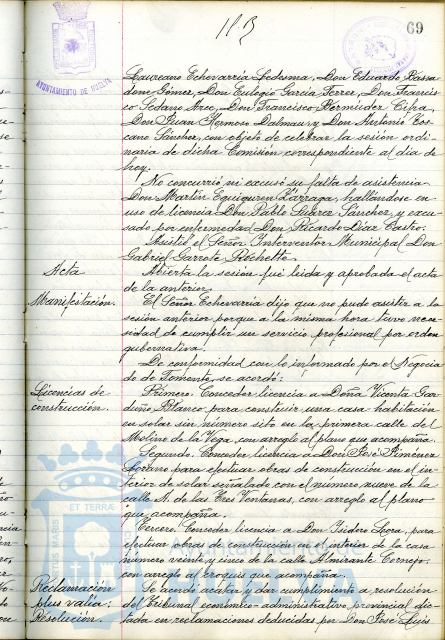 113
69
AYUNTAMIENTO DE HUELVA
Laureano Echevarría Ledesma, Don Eduardo
Gómez, Don Eulogio García Ferrer, Don Francis
co Sedano Arce, Don Francisco Bermúdez Cifra,
Don Juan Hermoso Dalmau y Don Antonio Tos
cano Sánchez, con objeto de celebrar la sesión ordi
naria de dicha Comisión correspondiente al día de
hoy.
No concurrió ni excusó su falta de asistencia
Don Martín Equiguren hallándose en
uso de licencia Don Pablo Suárez Sánchez, y excu
sado por enfermedad Don Ricardo Díaz Castro.
Asistió el Señor Interventor Municipal Don
Gabriel Garrote Rochette
Acta
Abierta la sesión fué leída y aprobada el acta
de la anterior.
Manifestación.
El Señor Echevarría dijo que no pudo asistir a la
sesión anterior porque a la misma hora tuvo nece
sidad de cumplir un servicio profesional por orden
gubernativa.
De conformidad con lo informado por el Negocia
do de Fomento, se acordó:
Licencias de
construcción.
Primero. Conceder licencia a Doña Vicenta Gar
duño Blanco para construir una casa habitación
en solar sin número sito en la primera calle del
Molino de la Vega, con arreglo al plano que acompaña.
Segundo. Conceder licencia a Don José Jiménez
Soriano para efectuar obras de construcción en el in
terior de solar señalado con el número nueve de la
calle A. de las Tres Ventanas, con arreglo al plano
que acompaña.
Tercero. Conceder licencia a Don Isidoro para
efectuar obras de construcción en el interior de la casa
número veinte y cinco de la calle Almirante
con arreglo al croquis que acompaña.
Reclamación
plus valía:
Resolución.
Se acordó acatar y dar cumplimiento a resolución
del Tribunal económico-administrativo provincial dic
tada en reclamaciones deducidas por Don José Luis